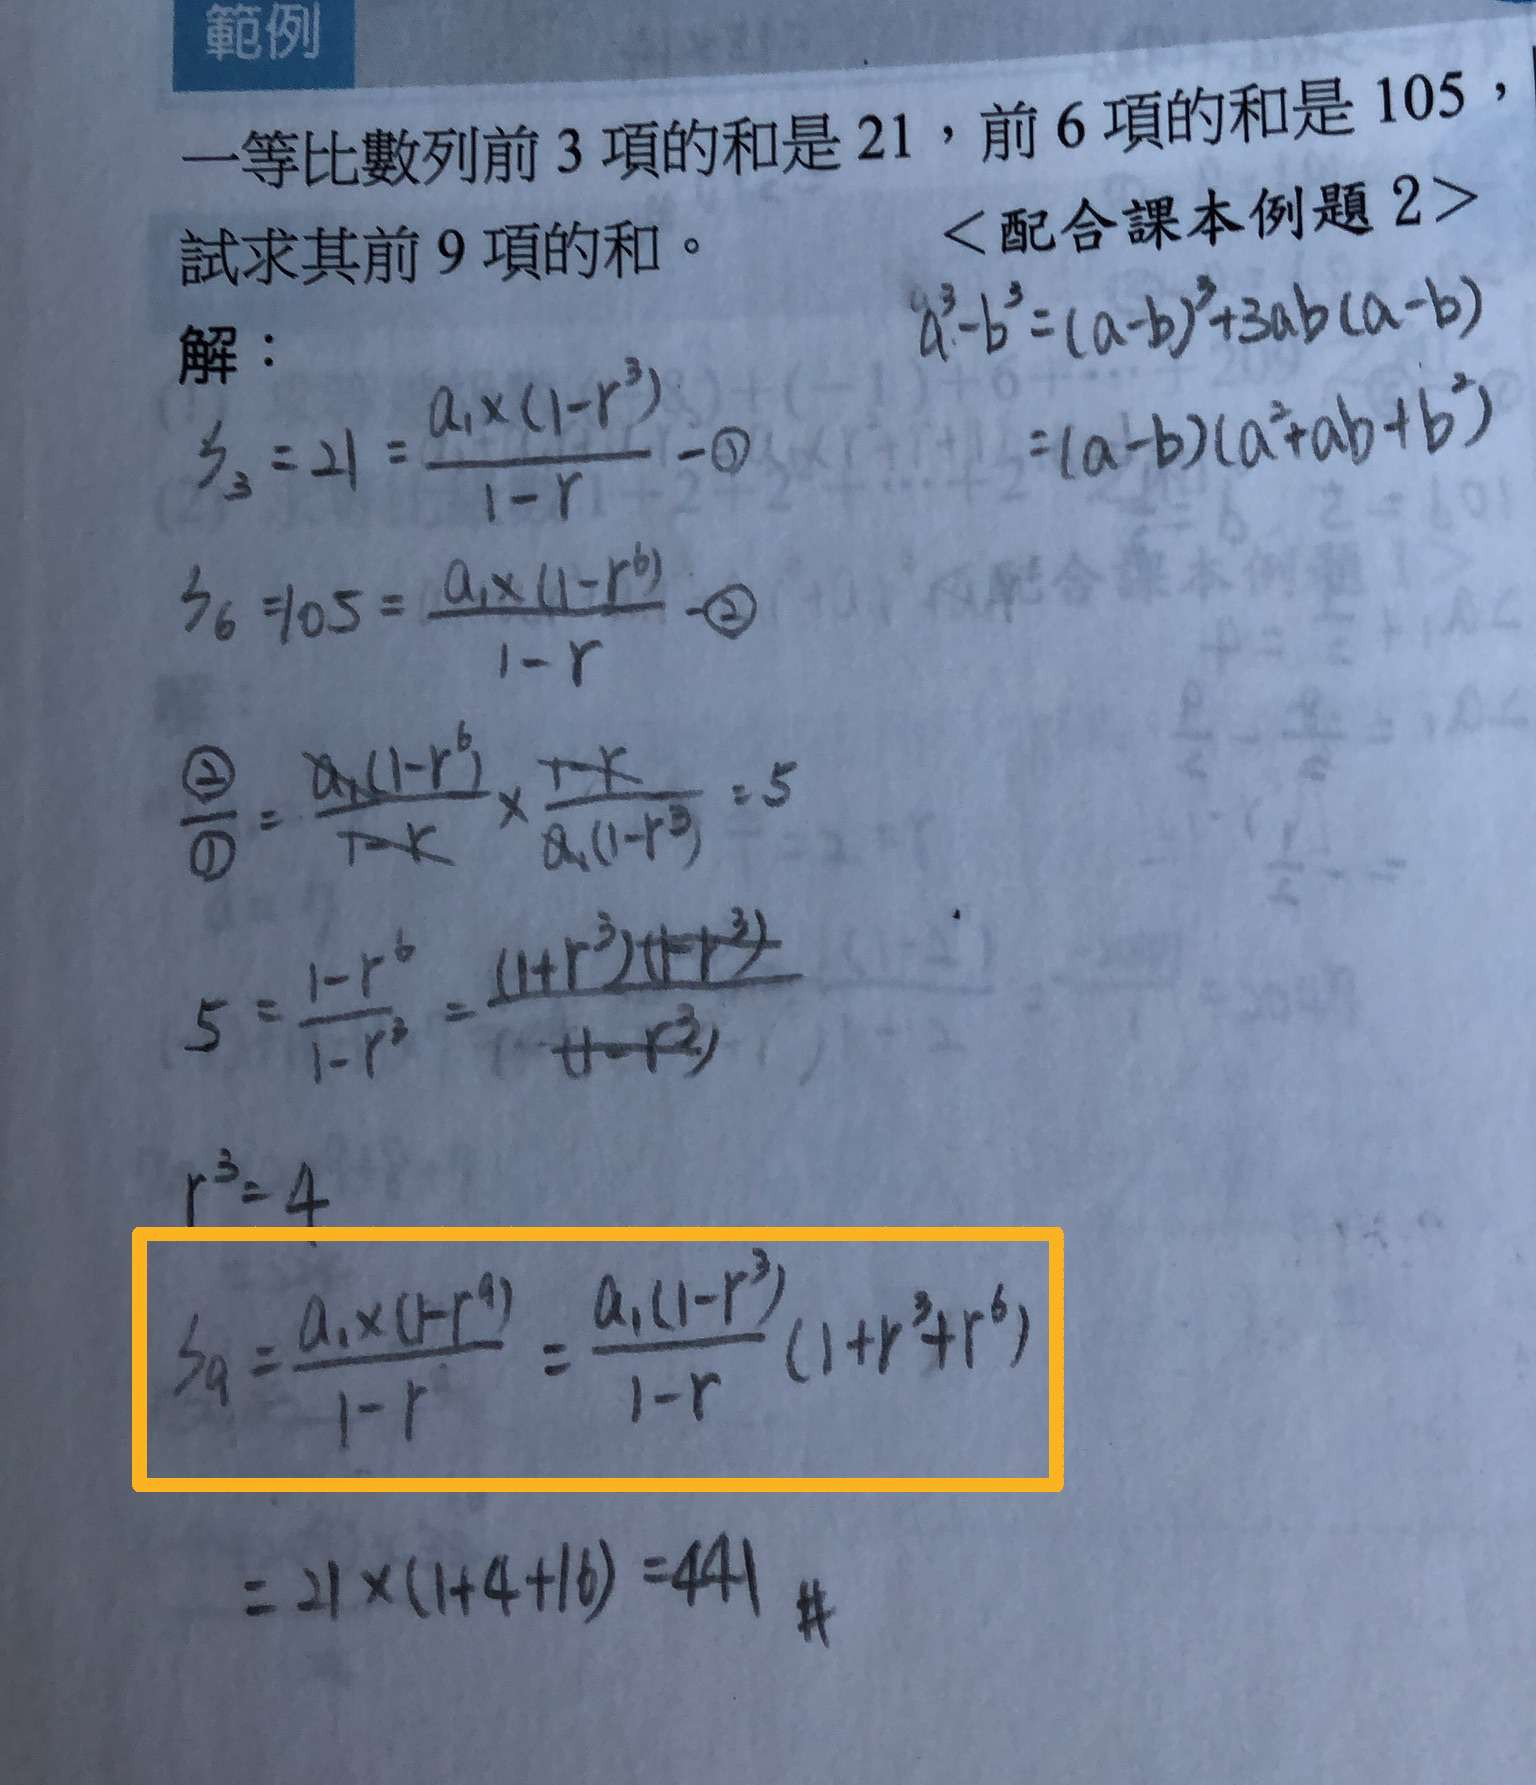 範例
一等比數列前 3 項的和是 21，前 6 項的和是 105，
試求其前 9 項的和。 <配合課本例題 2>
解：
a³-b³=(a-b)³+3ab(a-b)
=(a-b)(a²+ab+b²)
S₃ = 21 = a₁×(1-r³)/1-r -①
S₆ =105 = a₁×(1-r⁶)/1-r -②
②/① = a₁(1-r⁶)/1-r × 1-r/a₁(1-r³) = 5
5 = 1-r⁶/1-r³ = (1+r³)(1-r³)/(1-r³)
r³ = 4
S₉ = a₁×(1-r⁹)/1-r = a₁(1-r³)/1-r (1+r³+r⁶)
= 21×(1+4+16) =441 #